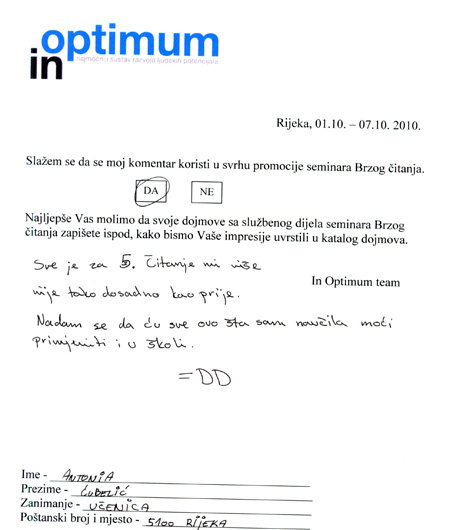 optimum
in najmoćniji sustav razvoja ljudskih potencijala
Rijeka, 01.10. – 07.10. 2010.
Slažem se da se moj komentar koristi u svrhu promocije seminara Brzog čitanja.
DA NE
Najljepše Vas molimo da svoje dojmove sa službenog dijela seminara Brzog
čitanja zapišete ispod, kako bismo Vaše impresije uvrstili u katalog dojmova.
Sve je za 5. Čitanje mi više
In Optimum team
nije tako dosadno kao prije.
Nadam se da ću sve ovo šta sam naučila moći
primjeniti i u školi.
=DD
Ime - ANTONIA
Prezime - ĆUBELIĆ
Zanimanje - UČENICA
Poštanski broj i mjesto - 5100 RIJEKA